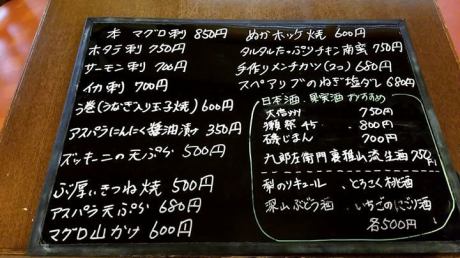 本 マグロ刺 850円
ホタテ刺 750円
サーモン刺 700円
イカ刺 700円
う巻(うなぎ入り玉子焼) 600円
アスパラにんにく醤油漬 350円
ズッキーニの天ぷら 500円
ぶ厚いきつね焼 500円
アスパラ天ぷら 680円
マグロ山かけ 600円
ぬかホッケ焼 600円
タルタルたっぷりチキン南蛮 750円
手作りメンチカツ(2コ) 680円
スペアリブのねぎ塩ダレ 680円
日本酒、果実酒 おすすめ
750円
獺祭45 800円
磯じまん 700円
九郎左衛門 裏雅山流 生酒 750円
梨のリキュール、とろこく桃酒
深山ぶどう酒、いちごのにごり酒
各500円